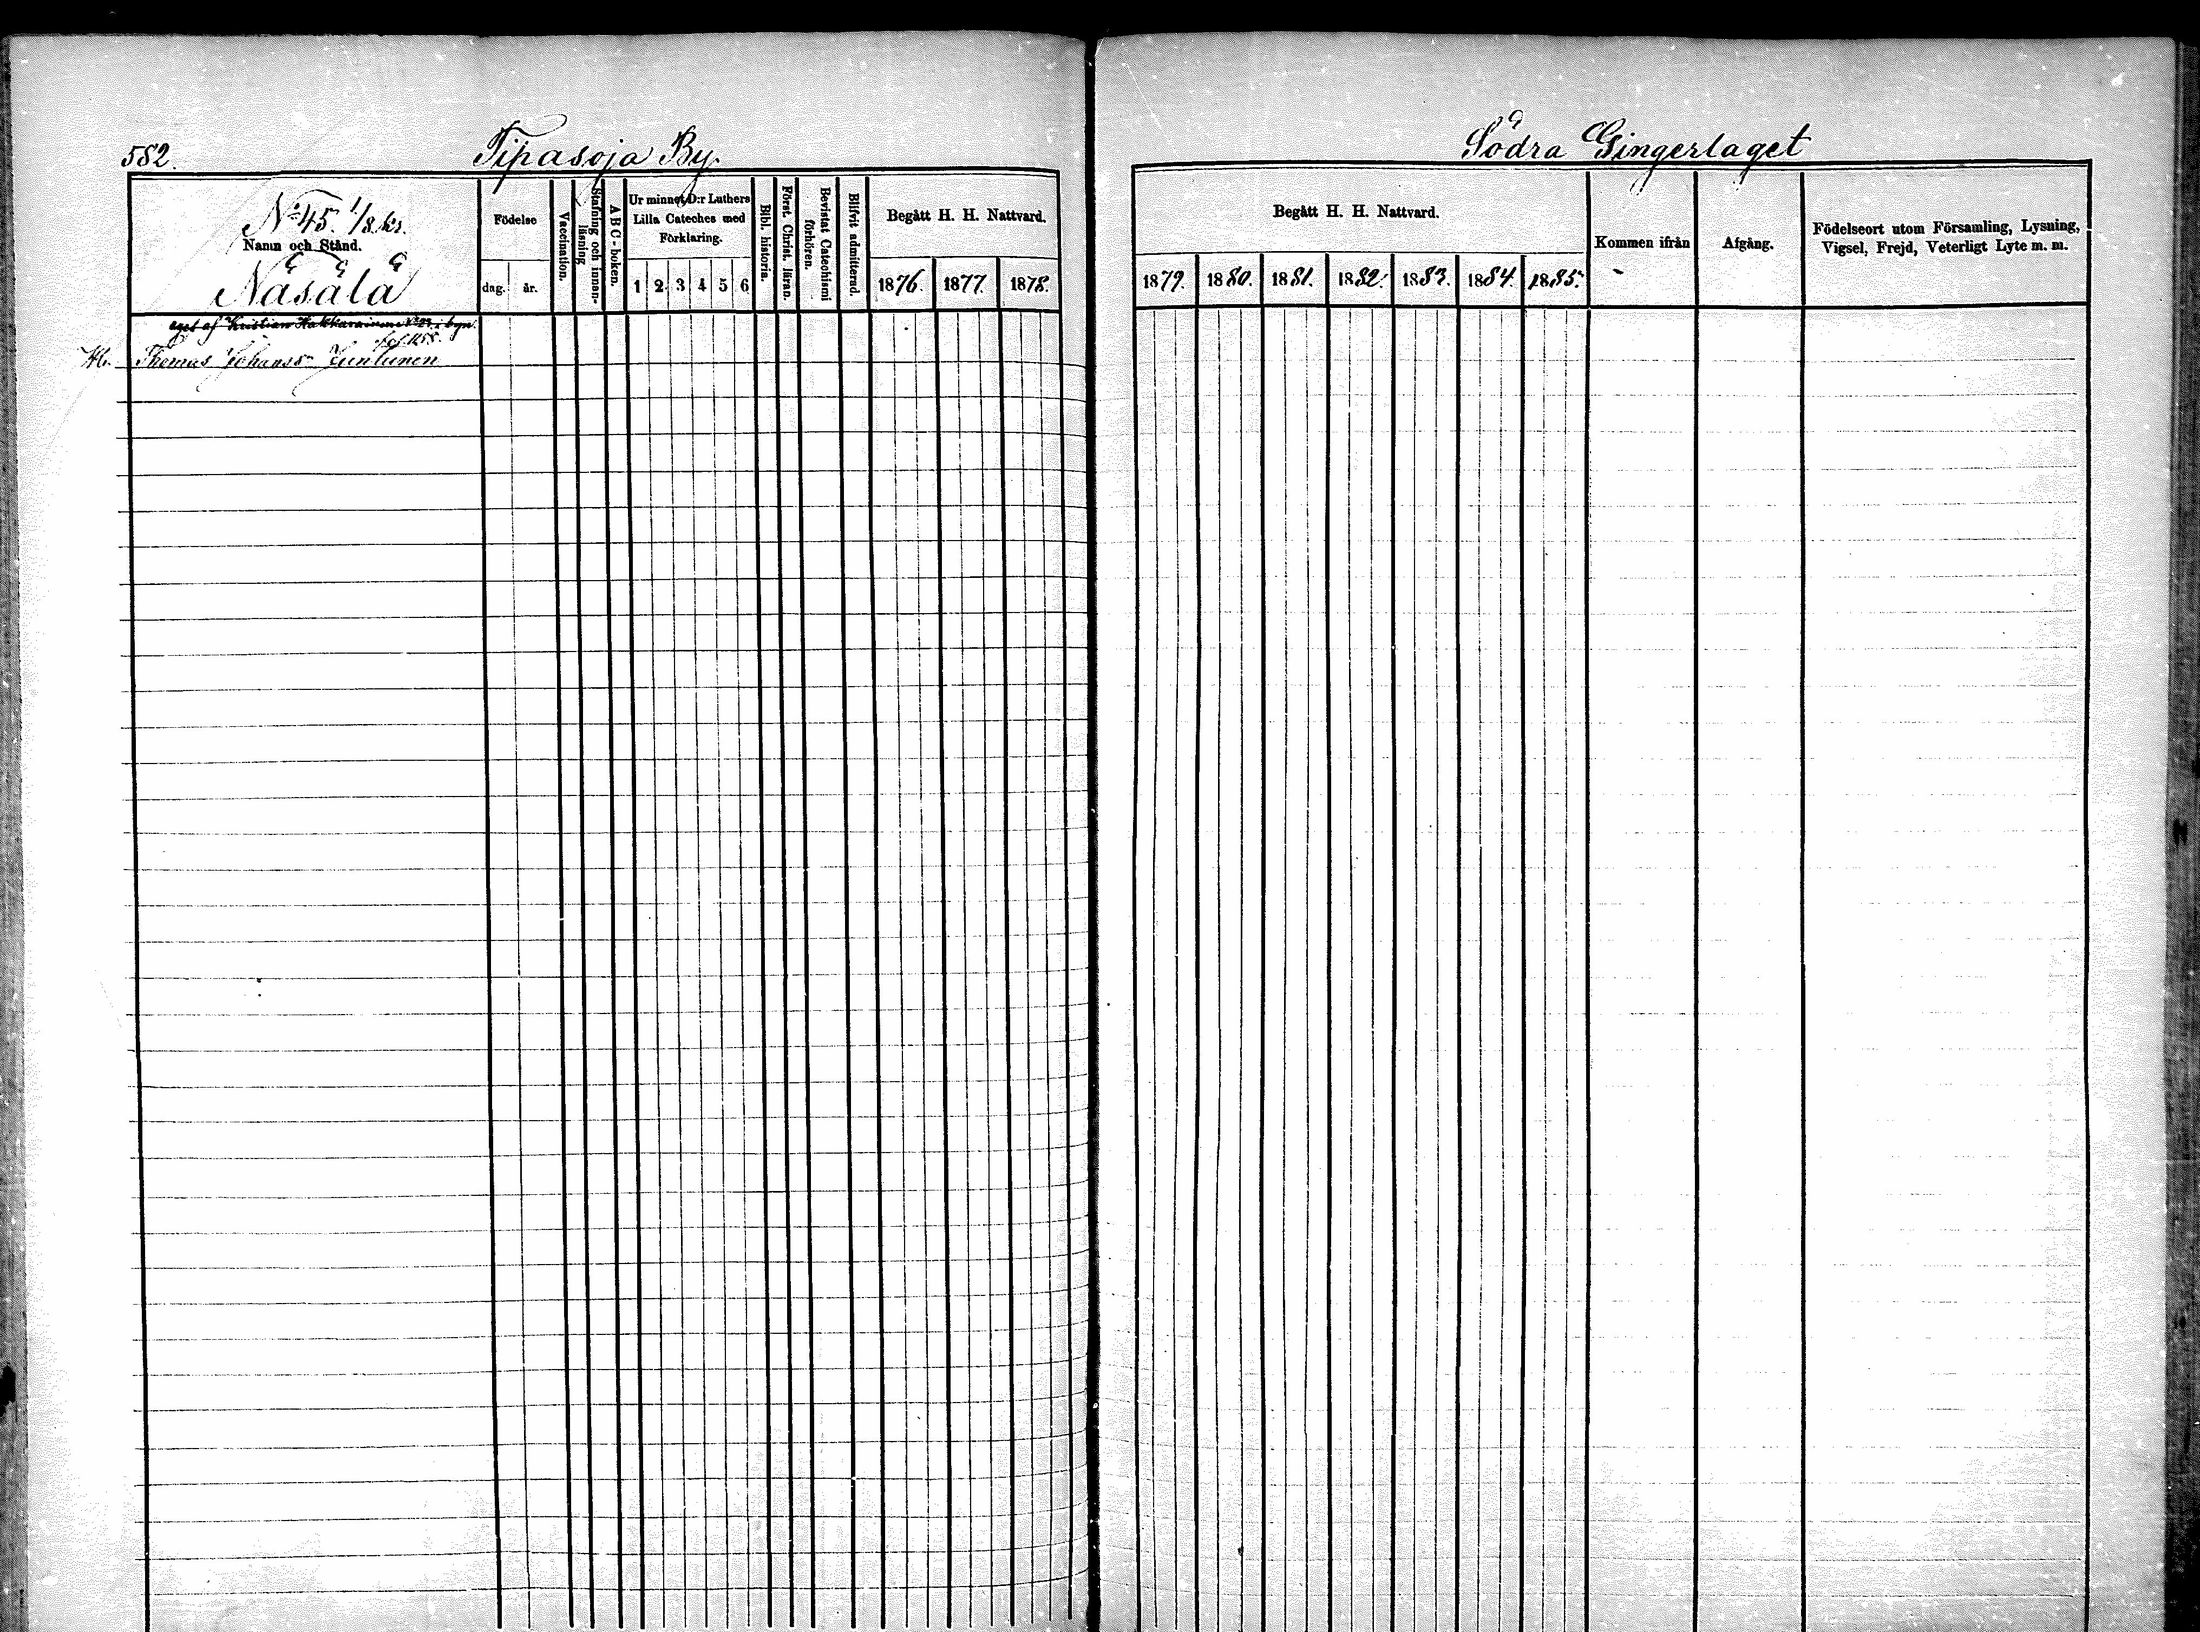 582.
Tipasoja By.
Södra Gingerlaget
N:45. 1/8 kr.
Namn och Stånd.
Näsälä
Födelse
dag. år.
Vaccination.
Stafning och innan-
läsning
A B C - boken.
Ur minnet D:r Luthers
Lilla Cateches med
Förklaring.
1 2 3 4 5 6
Bibl. historia.
Först. Christ. läran.
Bevistat Catechismi
förhören.
Blifvit admitterad.
Begått H. H. Nattvard.
1876. 1877. 1878.
Begått H. H. Nattvard.
1879. 1880. 1881. 1882. 1883. 1884. 1885.
Kommen ifrån
Afgång.
Födelseort utom Församling, Lysning,
Vigsel, Frejd, Veterligt Lyte m. m.
eget af Kristian Hakkarainen i byn.
Thomas Johanss Juntunen